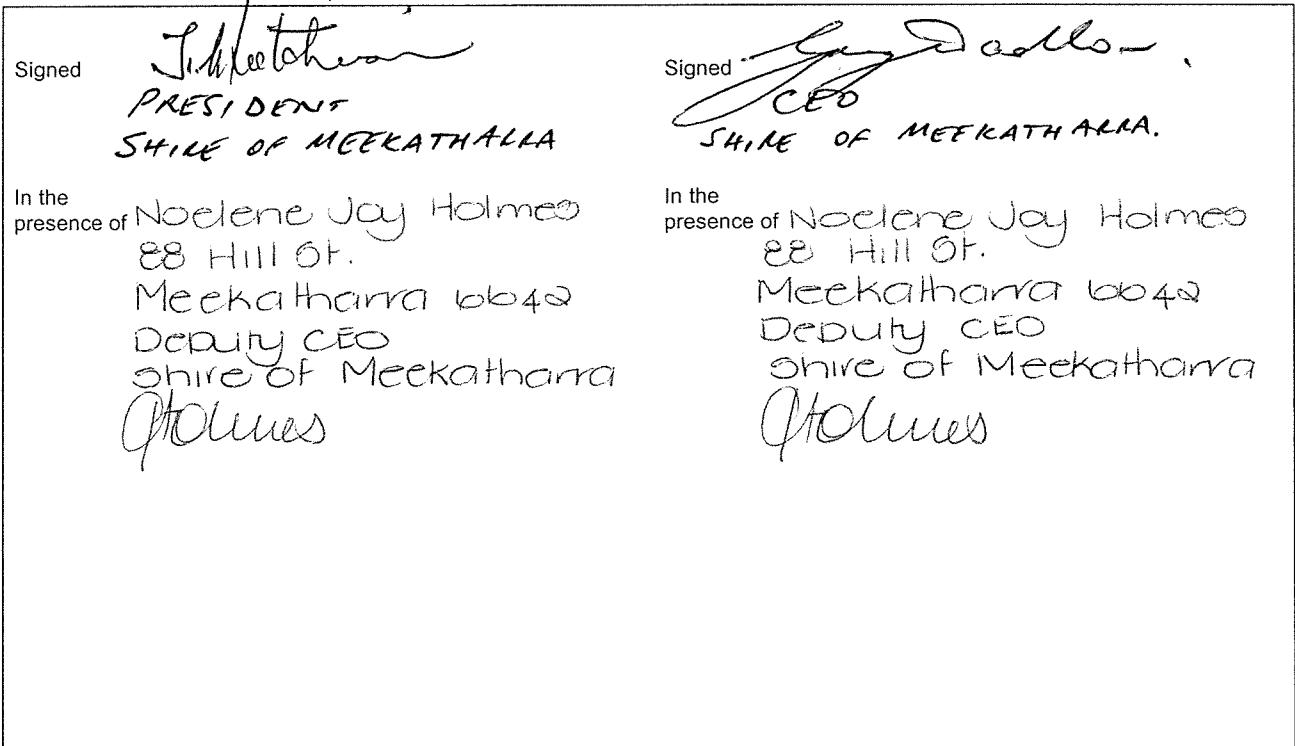 Signed
PRESIDENT
SHIRE OF MEEKATHARRA
In the
presence of Noelene Joy Holmes
88 Hill St.
Meekatharra 6642
Deputy CEO
Shire of Meekatharra
Holmes
Signed
CEO
SHIRE OF MEEKATHARRA.
In the
presence of Noelene Joy Holmes
88 Hill St.
Meekatharra 6642
Deputy CEO
Shire of Meekatharra
Holmes